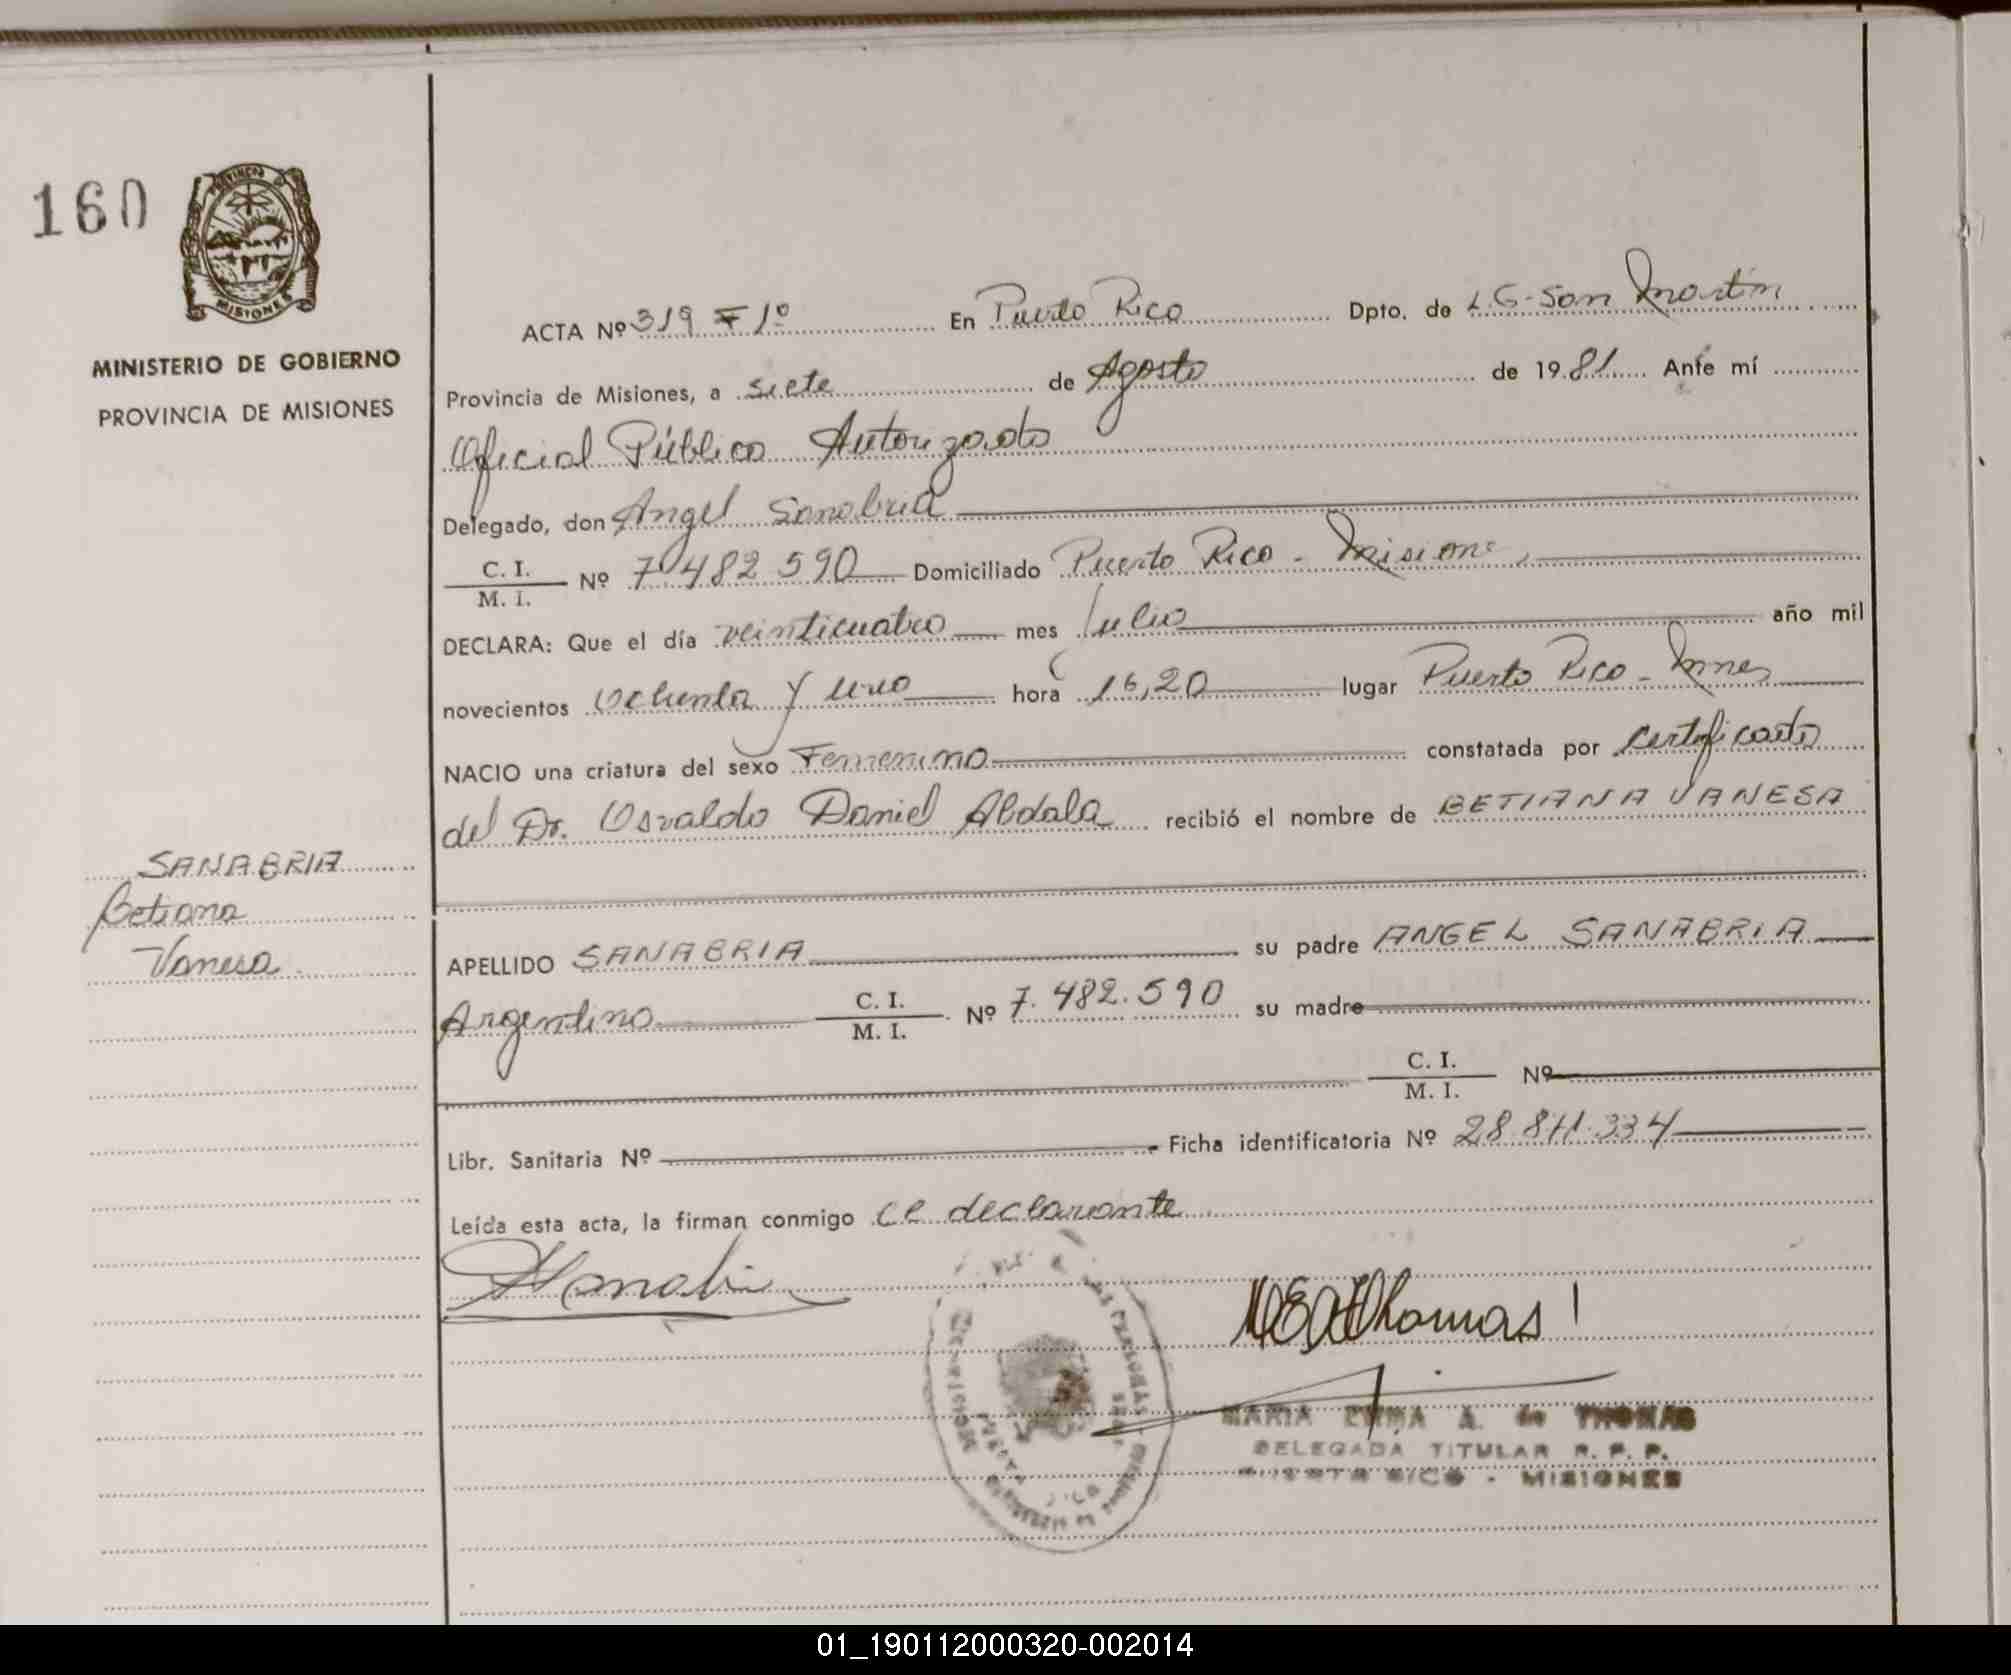 160
PROVINCIA DE
MISIONES
MINISTERIO DE GOBIERNO
PROVINCIA DE MISIONES
SANABRIA
Betiana
Vanesa
ACTA Nº 319 Tº 1º En Puerto Rico Dpto. de L.G. San Martín
Provincia de Misiones, a siete de Agosto de 1981 Ante mí
Oficial Público Autorizado
Delegado, don Angel Sanabria
C. I.
M. I. Nº 7.482.590 Domiciliado Puerto Rico - Misiones
DECLARA: Que el día veinticuatro mes Julio año mil
novecientos Ochenta y uno hora 16,20 lugar Puerto Rico - Mnes
NACIO una criatura del sexo Femenino constatada por certificado
del Dr. Osvaldo Daniel Abdala recibió el nombre de BETIANA VANESA
APELLIDO SANABRIA su padre ANGEL SANABRIA
Argentino C. I.
M. I. Nº 7.482.590 su madre
C. I.
M. I. Nº
Libr. Sanitaria Nº Ficha identificatoria Nº 28.811.334
Leída esta acta, la firman conmigo el declarante
MEAdThomas
MARIA EMMA A. de THOMAS
DELEGADA TITULAR R. P. P.
PUERTO RICO - MISIONES
01_190112000320-002014